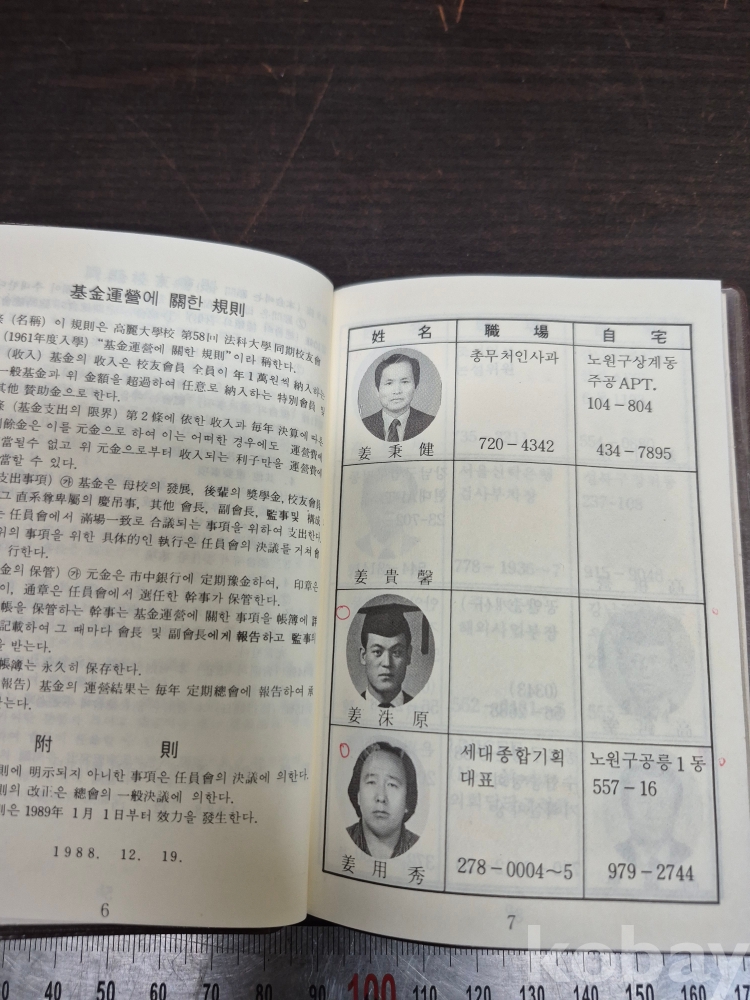 基金運營에 關한 規則
(名稱) 이 規則은 高麗大學校 第58回 法科大學 同期校友會
(1961年度入學) "基金運營에 關한 規則"이라 稱한다.
(收入) 基金의 收入은 校友會員 全員이 年 1 萬원씩 納入하는
一般基金과 위 金額을 超過하여 任意로 納入하는 特別會員 및
其他 贊助金으로 한다.
(基金支出의 限界) 第 2 條에 依한 收入과 每年 決算에 따른
剩餘金은 이를 元金으로 하여 이는 어떠한 경우에도 運營費에
當될수 없고 위 元金으로부터 收入되는 利子만을 運營費에
當할 수 있다.
支出事項) ㉮ 基金은 母校의 發展, 後輩의 獎學金, 校友會員
그 直系尊卑屬의 慶吊事, 其他 會長, 副會長, 監事및 構成
는 任員會에서 滿場一致로 合議되는 事項을 위하여 支出한다.
위의 事項을 위한 具体的인 執行은 任員會의 決議를 거쳐 會
行한다.
金의 保管) ㉮ 元金은 市中銀行에 定期豫金하여, 印章은
이, 通章은 任員會에서 選任한 幹事가 保管한다.
帳을 保管하는 幹事는 基金運營에 關한 事項을 帳簿에 詳
記載하여 그 때마다 會長 및 副會長에게 報告하고 監事의
을 받는다.
帳簿는 永久히 保存한다.
報告) 基金의 運營結果는 每年 定期總會에 報告하여 承
는다.
附 則
則에 明示되지 아니한 事項은 任員會의 決議에 의한다.
則의 改正은 總會의 一般決議에 의한다.
則은 1989年 1月 1日부터 效力을 發生한다.
1988. 12. 19.
6
姓 名 職 場 自 宅
총무처인사과 노원구상계동
주공 APT.
104-804
姜 秉 健 720-4342 434-7895
姜 貴 馨
姜 洙 原
세대종합기획 노원구공릉 1 동
대표 557-16
姜 用 秀 278-0004~5 979-2744
7
kobay
30 40 50 60 70 80 90 100 110 120 130 140 150 160 17